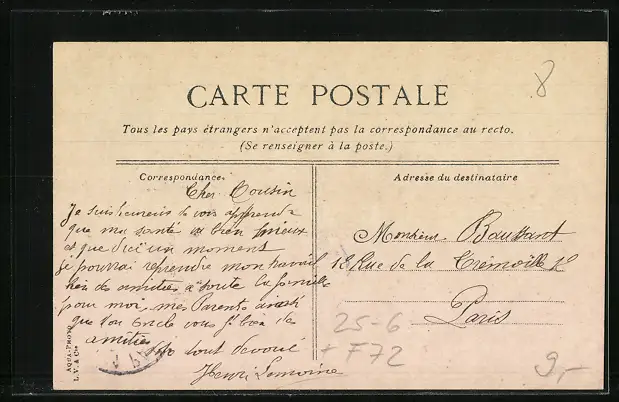 8
CARTE POSTALE
Tous les pays étrangers n'acceptent pas la correspondance au recto.
(Se renseigner à la poste.)
Correspondance.
Cher Cousin
Je suis heureux de vous apprendre
que ma santé va bien mieux
et que d'ici un moment
je pourrai reprendre mon travail
bien des amitiés à toute la famille
pour moi, mes Parents ainsi
que ton Oncle vous bien des
amitiés
tout dévoué
Henri Lemoine
AQUA-PHOTO
L. V. & Cie
Adresse du destinataire
Monsieur
18 Rue de la Trémoille 18
Paris
25-6
+ F72
9,-